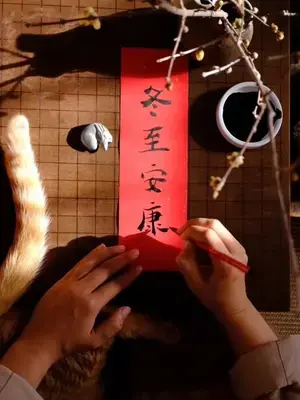 冬至安康